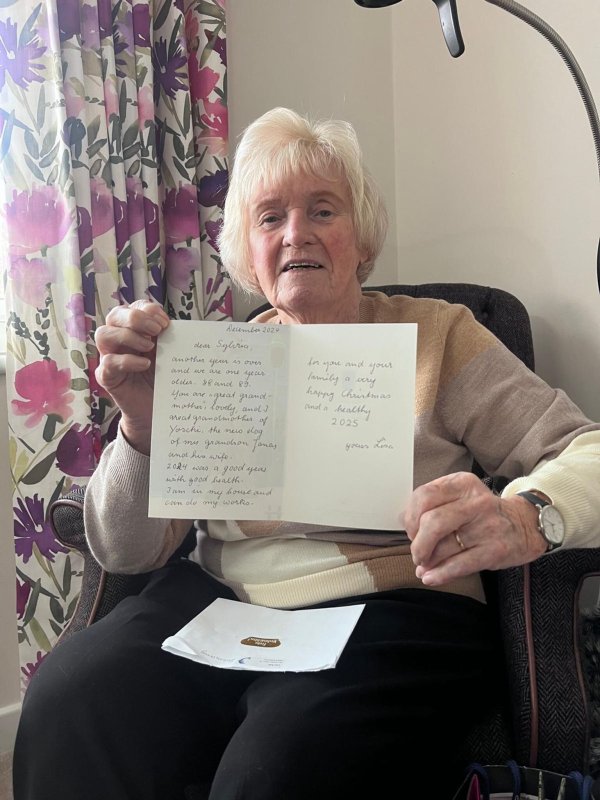 December 2024
dear Sylvia
another year is over
and we are one year
older. 88 and 89.
You are "great grand-
mother", lovely, and I
great grandmother of
the new dog
of my grandson James
and his wife.
2024 was a good year
with good health.
I am in my house and
can do my works.
for you and your
family a very
happy Christmas
and a healthy
2025
yours Lisa